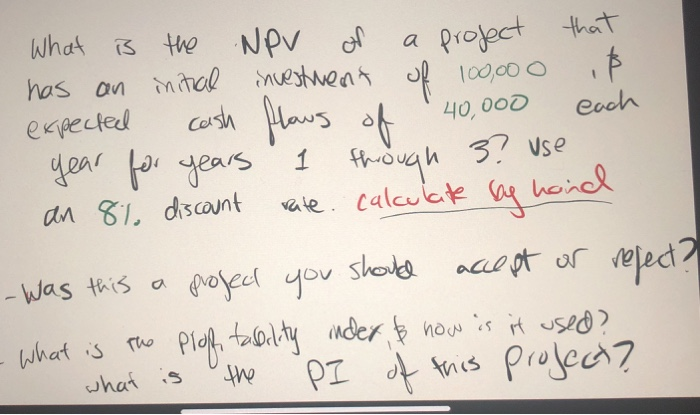 What is the NPV of a project that
has an initial investment of 100,000, &
expected cash flows of 40,000 each
year for years 1 through 3? Use
an 8% discount rate. Calculate by hand
- Was this a project you should accept or reject?
- What is the profitability index, & how is it used?
what is the PI of this project?